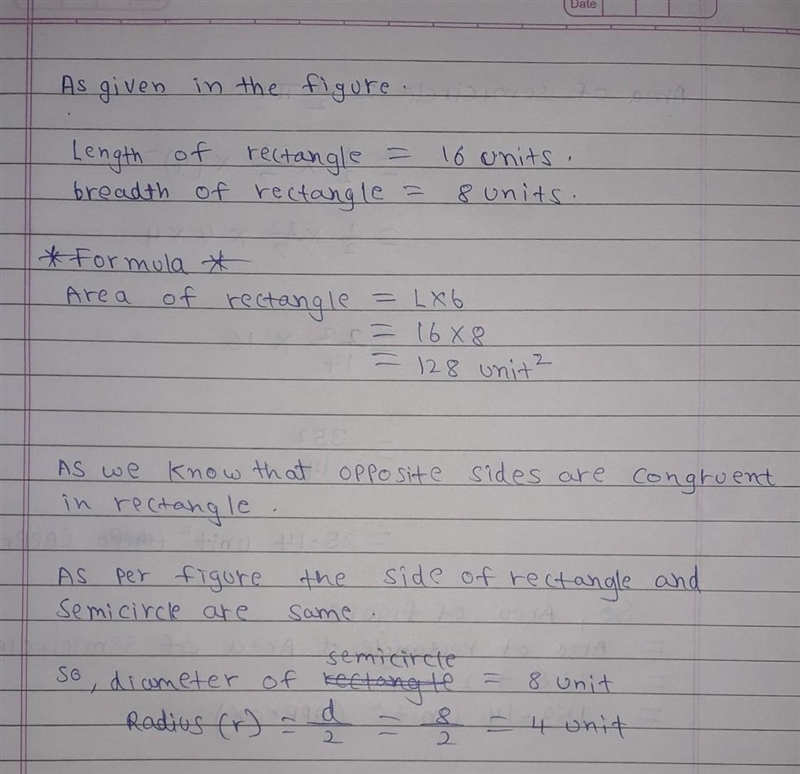 Date
As given in the figure.
Length of rectangle = 16 units.
breadth of rectangle = 8 units.
*Formula*
Area of rectangle = L×b
= 16 × 8
= 128 unit²
As we know that opposite sides are congruent
in rectangle.
As per figure the side of rectangle and
semicircle are same.
semicircle
so, diameter of rectangle = 8 unit
Radius (r) = d/2 = 8/2 = 4 unit